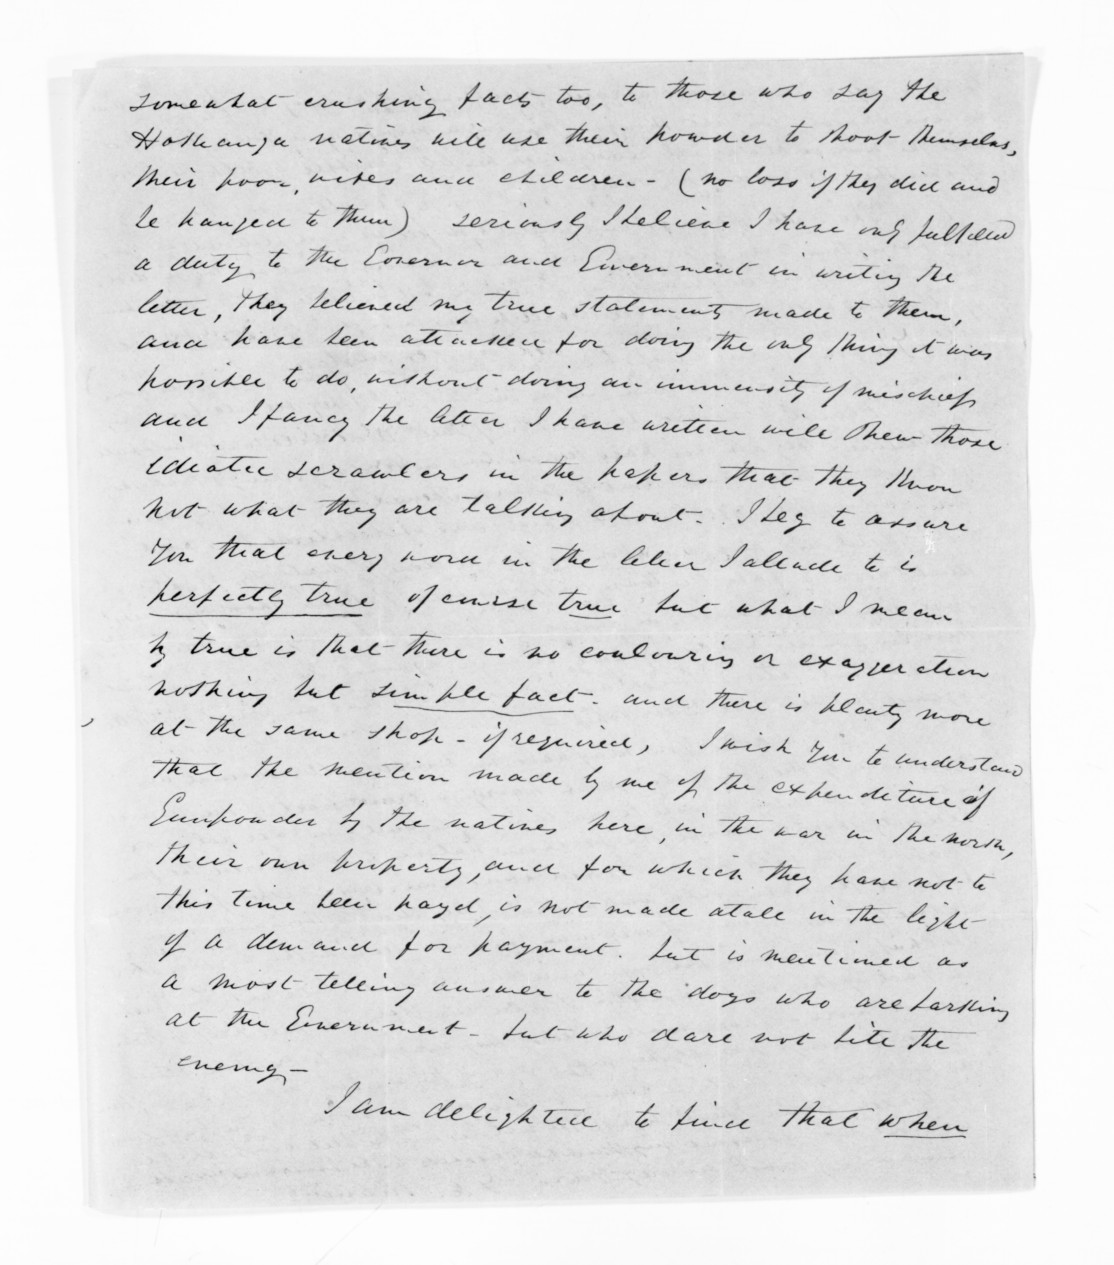 somewhat crushing facts too, to those who say the
Hokianga natives will use their powder to shoot themselves,
their poor, wives and children - (no loss if they did and
be hanged to them) seriously I believe I have only fulfilled
a duty to the Governor and Government in writing the
letter, they believed my true statements made to them,
and have been attacked for doing the only thing it was
possible to do, without doing an immensity of mischief
and I fancy the letter I have written will shew those
idiotic scrawlers in the papers that they know
not what they are talking about. I beg to assure
you that every word in the letter I allude to is
perfectly true of course true but what I mean
by true is that there is no coulouring or exaggeration
nothing but simple fact. and there is plenty more
at the same shop - if required, I wish you to understand
that the mention made by me of the expenditure of
Gunpowder by the natives here, in the war in the north,
their own property, and for which they have not to
this time been payd, is not made atall in the light
of a demand for payment. but is mentioned as
a most telling answer to the dogs who are barking
at the Government - but who dare not bite the
enemy -
I am delighted to find that when